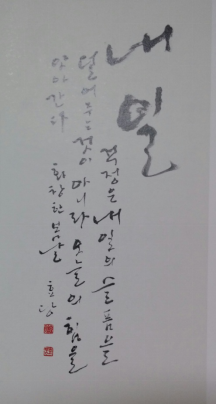 내일
걱정은 내일의 슬픔으로
덜어주는 것이 아니라 오늘의 힘을
앗아간다
화창한 봄날